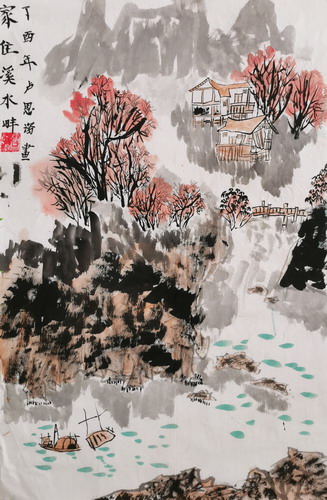 家住溪水畔
丁酉年卢恩畫